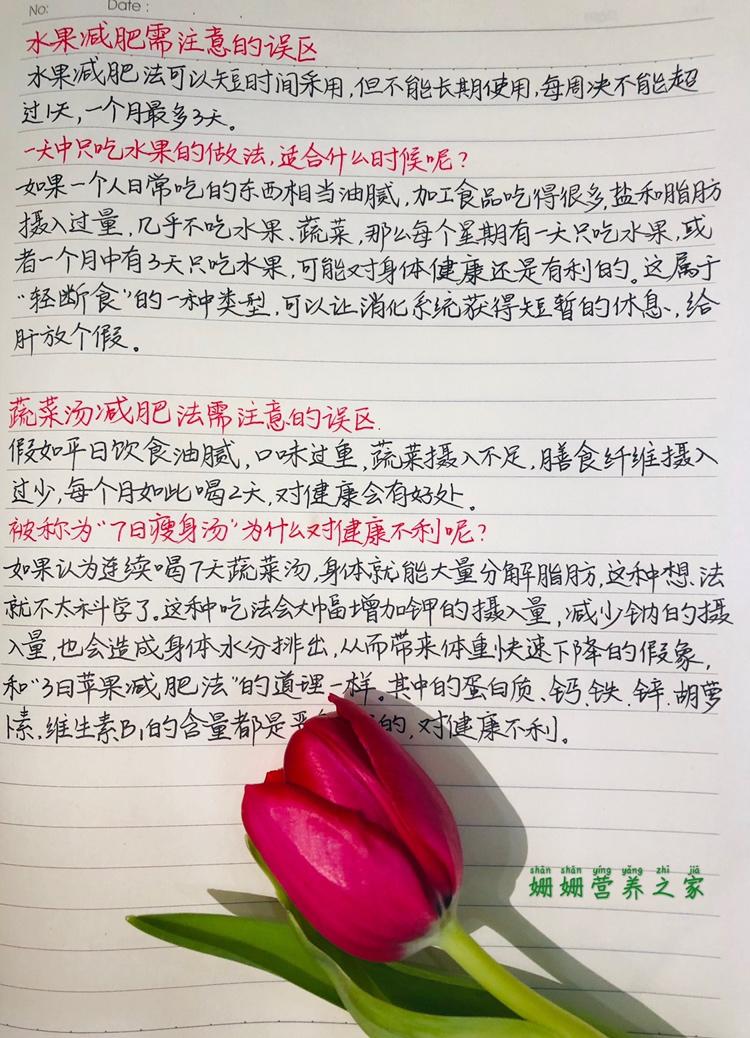 No:
Date :
水果减肥需注意的误区
水果减肥法可以短时间采用,但不能长期使用,每周决不能超
过1天,一个月最多3天。
一天中只吃水果的做法,适合什么时候呢?
如果一个人日常吃的东西相当油腻,加工食品吃得很多,盐和脂肪
摄入过量,几乎不吃水果、蔬菜,那么每个星期有一天只吃水果,或
者一个月中有3天只吃水果,可能对身体健康还是有利的。这属于
“轻断食”的一种类型,可以让消化系统获得短暂的休息,给
肝放个假。
蔬菜汤减肥法需注意的误区.
假如平日饮食油腻,口味过重,蔬菜摄入不足,膳食纤维摄入
过少,每个月如此喝2天,对健康会有好处。
被称为“7日瘦身汤”为什么对健康不利呢?
如果认为连续喝7天蔬菜汤,身体就能大量分解脂肪,这种想法
就不太科学了。这种吃法会大幅增加钾的摄入量,减少钠的摄
入量,也会造成身体水分排出,从而带来体重快速下降的假象,
和“3日苹果减肥法”的道理一样。其中的蛋白质、钙、铁、锌、胡萝
卜素、维生素B1的含量都是 的,对健康不利。
shān shān yíng yǎng zhī jiā
姗姗营养之家